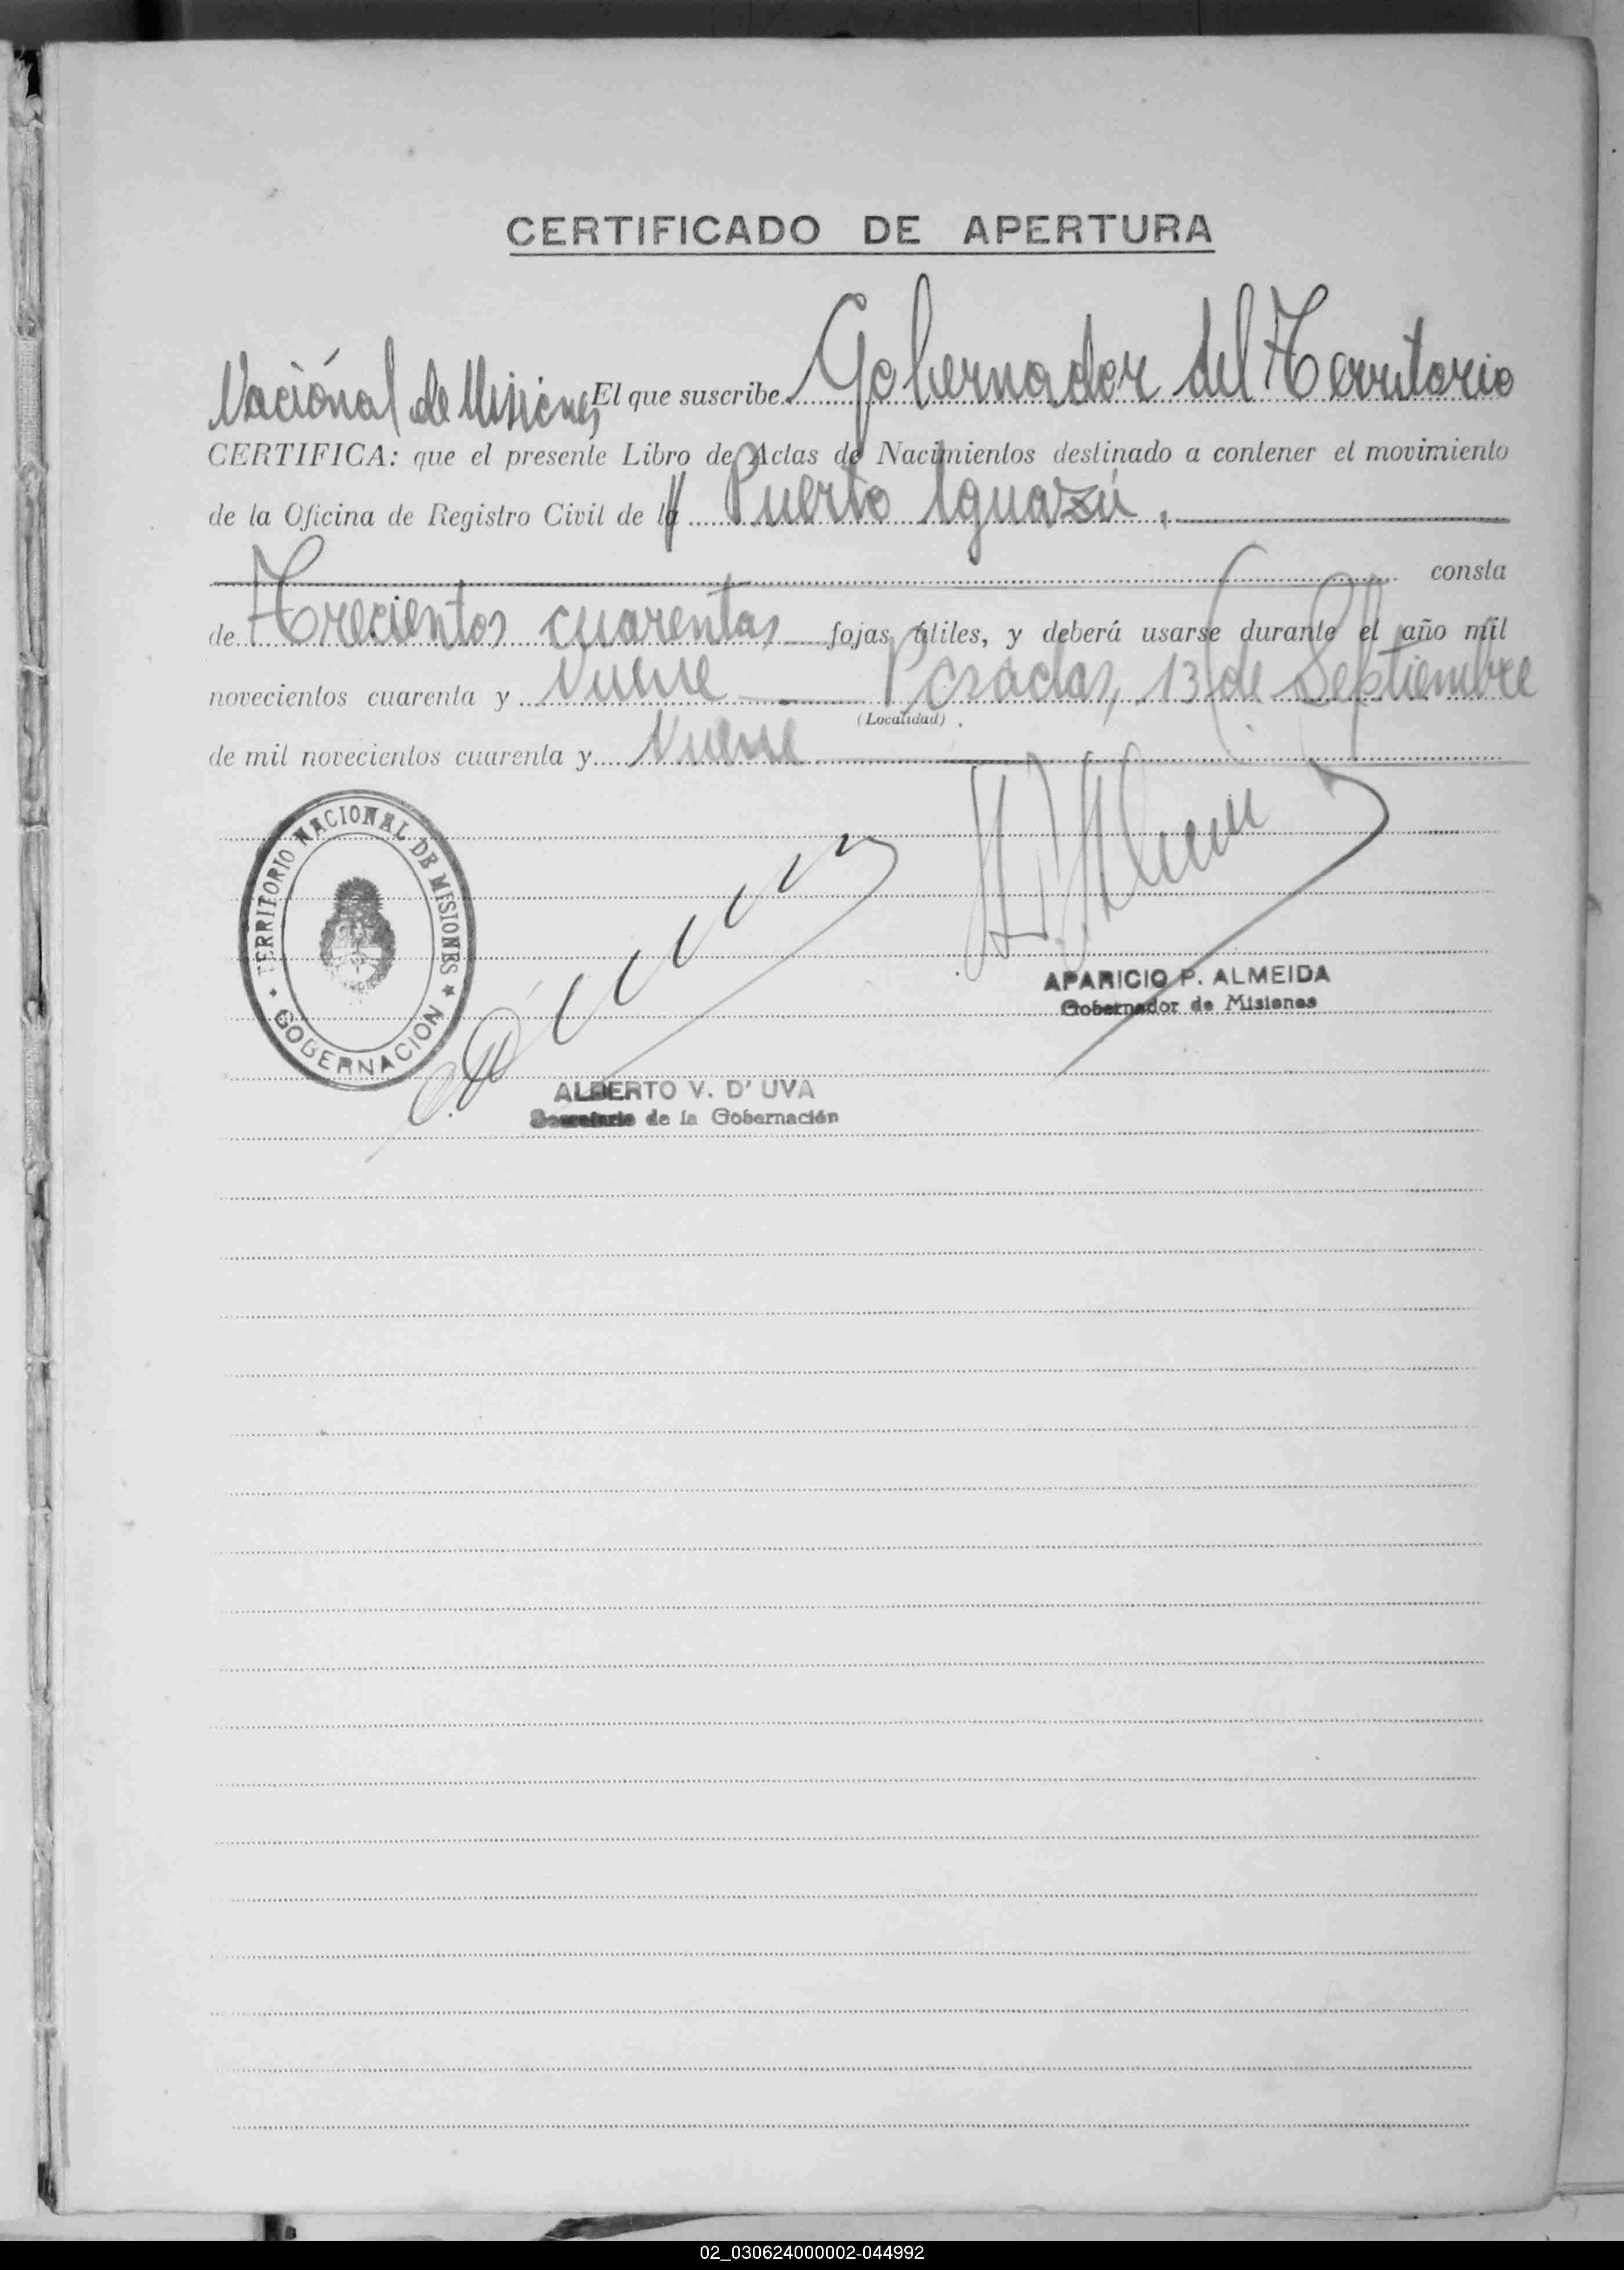 CERTIFICADO DE APERTURA
El que suscribe Gobernador del Territorio
Nacional de Misiones
CERTIFICA: que el presente Libro de Actas de Nacimientos destinado a contener el movimiento
de la Oficina de Registro Civil de la Puerto Iguazú.
consta
de Trecientos cuarentas fojas útiles, y deberá usarse durante el año mil
novecientos cuarenta y Nueve Posadas, 13 de Septiembre
(Localidad)
de mil novecientos cuarenta y Nueve
TERRITORIO NACIONAL DE MISIONES
GOBERNACION
APARICIO P. ALMEIDA
Gobernador de Misiones
ALBERTO V. D' UVA
Secretario de la Gobernación
02_030624000002-044992